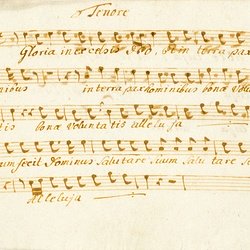 Tenore
Gloria in excelsis Deo, et in terra pax
in terra pax hominibus bonæ volun
tis bonæ voluntatis alleluja
fecit Dominus salutare suum salutare
Alleluja